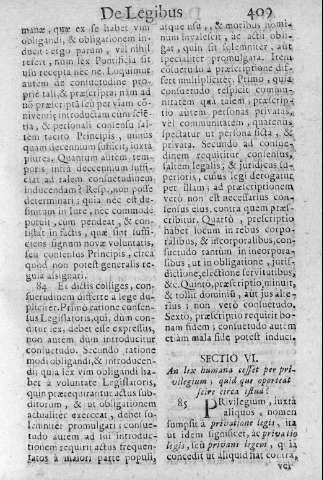 De Legibus
409
manæ, quæ ex se habet vim
obligandi, & obligationem in-
ducit: ergo parum, vel nihil
refert, num lex Pontificia sit
usu recepta nec ne. Loquimur
autem de consuetudine pro-
priè tali, & præscripta; nam ad
no præscriptã seu per viam cõ-
niventiæ introductam cum sciẽ-
tia, & personali consensu sal-
tem tacito Principis, minus
quam decennium sufficit, iuxta
plures. Quantum autem tem-
poris intra decennium suffi-
ciat ad talem consuetudinem
inducendam? Resp. non posse
determinari; quia nec est de-
finitum in Iure, nec commodè
potuit, cum pendeat, & con-
sistat in factis, quæ sint suffi-
ciens signum novæ voluntatis,
seu consensus Principis, circa
quod non potest generalis re-
gula assignari.
84 Ex dictis colliges, con-
suetudinem differre a lege du-
pliciter. Primò ratione consen-
sus Legislatoris, qui, dum con-
ditur lex, debet esse expressus,
non autem dum introducitur
consuetudo. Secundò ratione
modi obligandi, & introducen-
di: quia lex vim obligandi ha-
bet à voluntate Legislatoris,
quin præcedant actus subdi-
torum, & ut obligationem
actualiter exerceat, debet so-
lemniter promulgari: consue-
tudo autem ad sui introductio-
nem requirit actus frequen-
tatos à maiori parte populi,
atque usu, & moribus homi-
num invalescit, ac actu obli-
gat, quin sit solemniter, aut
specialiter promulgata. Item
consuetudo à præscriptione dif-
fert multipliciter. Primò, quia
consuetudo respicit commu-
nitatem quà talem; præscrip-
tio autem personas privatas,
vel communitatem, quatenus
spectatur ut persona ficta, &
privata. Secundò ad consue-
dinem requiritur consensus,
saltem legalis; & juridicus su-
perioris, cuius legi derogatur
per illam; ad præscriptionem
verò non est necessarius con-
sensus eius, contra quem præs-
cribitur. Quartò, præscriptio
habet locum in rebus corpo-
ralibus, & incorporalibus, con-
suetudo tantùm in incorpora-
libus, ut in obligatione, juris-
dictione, electione servitutibus,
&c. Quintò, præscriptio, minuit,
& tollit dominiũ, aut jus alte-
rius; non verò consuetudo.
Sextò, præscriptio requirit bo-
nam fidem; consuetudo autem
etiam mala fide potest induci.
SECTIO VI.
An lex humana cesset per pri-
vilegium, quid que oporteat
scire circa istud?
85 PRivilegium, iuxta
aliquos, nomen
sumpsit à privatione legis, ita
ut idem significet, ac privatio
legis, seu privans legem, quia
concedit ut aliquid fiat contra,
vel